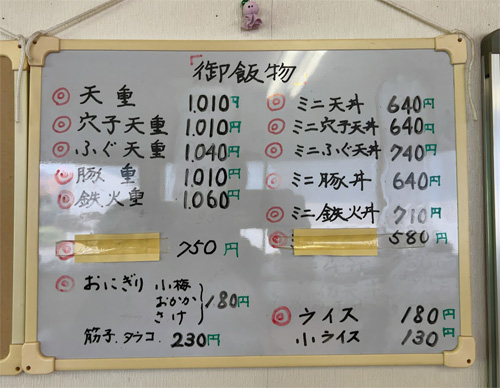 御飯物
◎ 天重 1.010円
◎ 穴子天重 1.010円
◎ ふぐ天重 1.040円
◎ 豚重 1.010円
◎ 鉄火重 1.060円
◎ 750円
◎ おにぎり 小梅 おかか さけ 180円
筋子.タラコ. 230円
◎ ミニ天丼 640円
◎ ミニ穴子天丼 640円
◎ ミニふぐ天丼 740円
◎ ミニ豚丼 640円
◎ ミニ鉄火丼 710円
◎ 580円
◎ ライス 180円
小ライス 130円